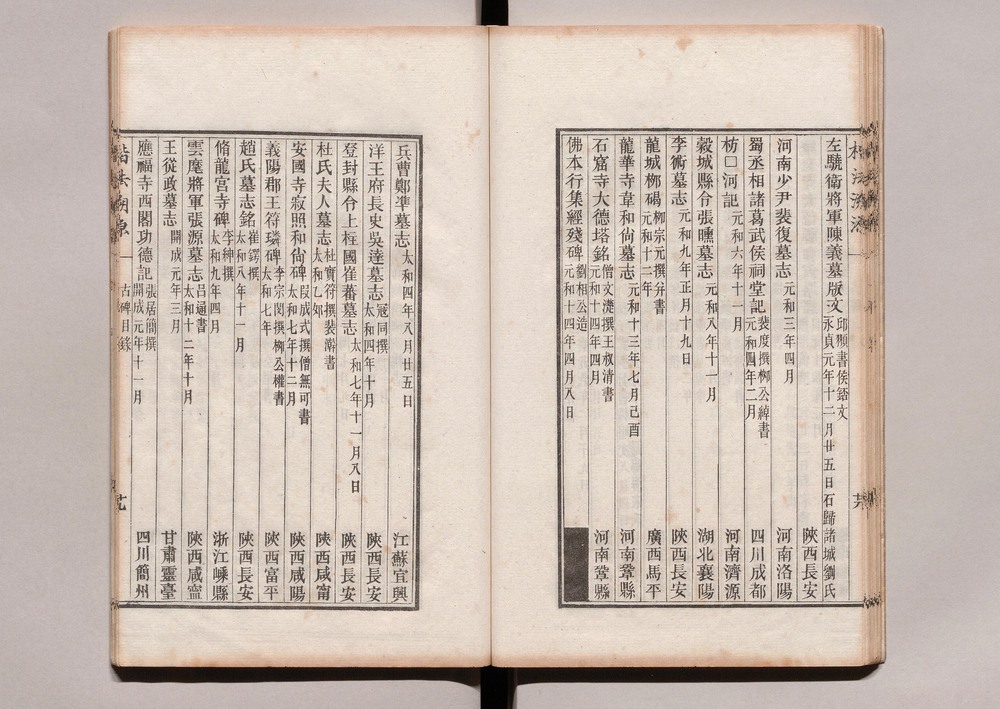 左驍衛將軍陳義墓版文 邱願書侯銛文 永貞元年十二月廿五日石歸諸城劉氏 陝西長安
河南少尹裴復墓志 元和三年四月 河南洛陽
蜀丞相諸葛武侯祠堂記 裴度撰柳公綽書 元和四年二月 四川成都
枋口河記 元和六年十一月 河南濟源
穀城縣令張曛墓志 元和八年十一月 湖北襄陽
李術墓志 元和九年正月十九日 陝西長安
龍城柳碣 柳宗元撰并書 元和十二年 廣西馬平
龍華寺韋和尙墓志 元和十三年七月己酉 河南鞏縣
石窟寺大德塔銘 僧文湹撰王叔清書 元和十四年四月 河南鞏縣
佛本行集經殘碑 劉相公造 元和十四年四月八日
兵曹鄭準墓志 太和四年八月廿五日 江蘇宜興
洋王府長史吳達墓志 寇同撰 太和四年十月 陝西長安
登封縣令上柱國崔蕃墓志 太和七年十一月八日 陝西長安
杜氏夫人墓志 杜寶符撰裴瀚書 太和乙卯 陝西咸甯
安國寺寂照和尙碑 段成式撰僧無可書 太和七年十二月 陝西咸陽
義陽郡王符璘碑 李宗閔撰柳公權書 太和七年 陝西富平
趙氏墓志銘 崔鍔撰 太和八年十一月 陝西長安
脩龍宫寺碑 李紳撰 太和九年四月 浙江嵊縣
雲麾將軍張源墓志 呂通書 太和十二年十月 陝西咸甯
王從政墓志 開成元年三月 甘肅靈臺
應福寺西閣功德記 張居簡撰 開成元年十一月 四川簡州
古碑目錄